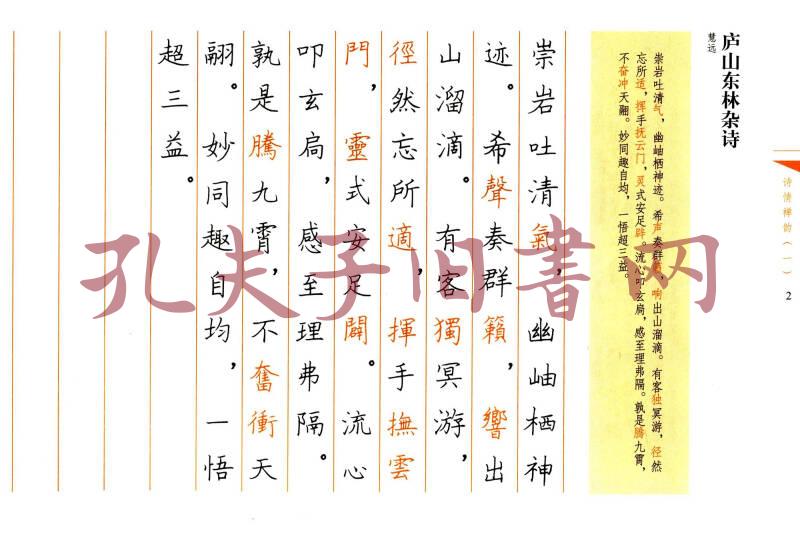 诗情禅韵(一)
2
庐山东林杂诗
慧远
崇岩吐清气,幽岫栖神迹。希声奏群籁,响出山溜滴。有客独冥游,径然
忘所适,挥手抚云门,灵式安足辟。流心叩玄扃,感至理弗隔。孰是腾九霄,
不奋冲天翮。妙同趣自均,一悟超三益。
崇岩吐清氣,幽岫栖神
迹。希聲奏群籟,響出
山溜滴。有客獨冥游,
徑然忘所適,揮手撫雲
門,靈式安足闢。流心
叩玄扃,感至理弗隔。
孰是騰九霄,不奮衝天
翮。妙同趣自均,一悟
超三益。
孔夫子旧书网